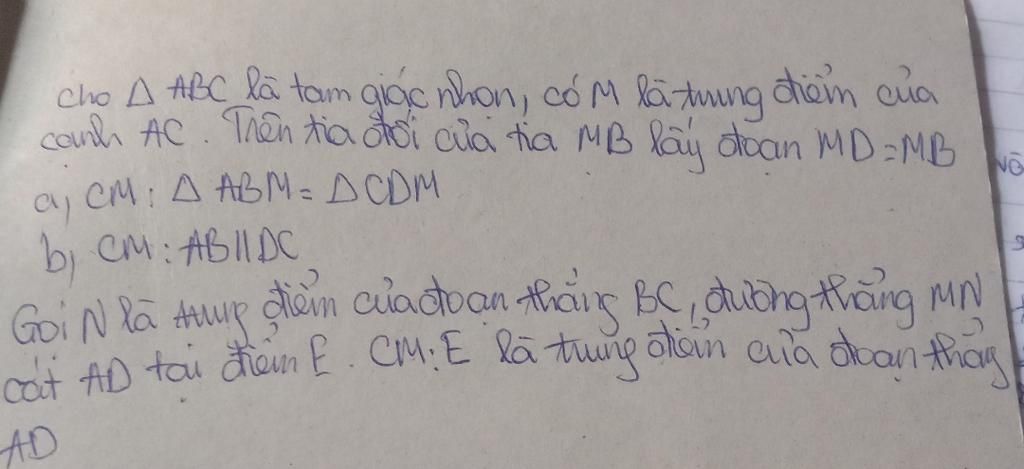 Cho Δ ABC là tam giác nhọn, có M là trung điểm của
cạnh AC. Trên tia đối của tia MB lấy đoạn MD=MB
a, CM: Δ ABM = Δ CDM
b, CM: AB//DC
Gọi N là trung điểm của đoạn thẳng BC, đường thẳng MN
cắt AD tại điểm E. CM: E là trung điểm của đoạn thẳng
AD